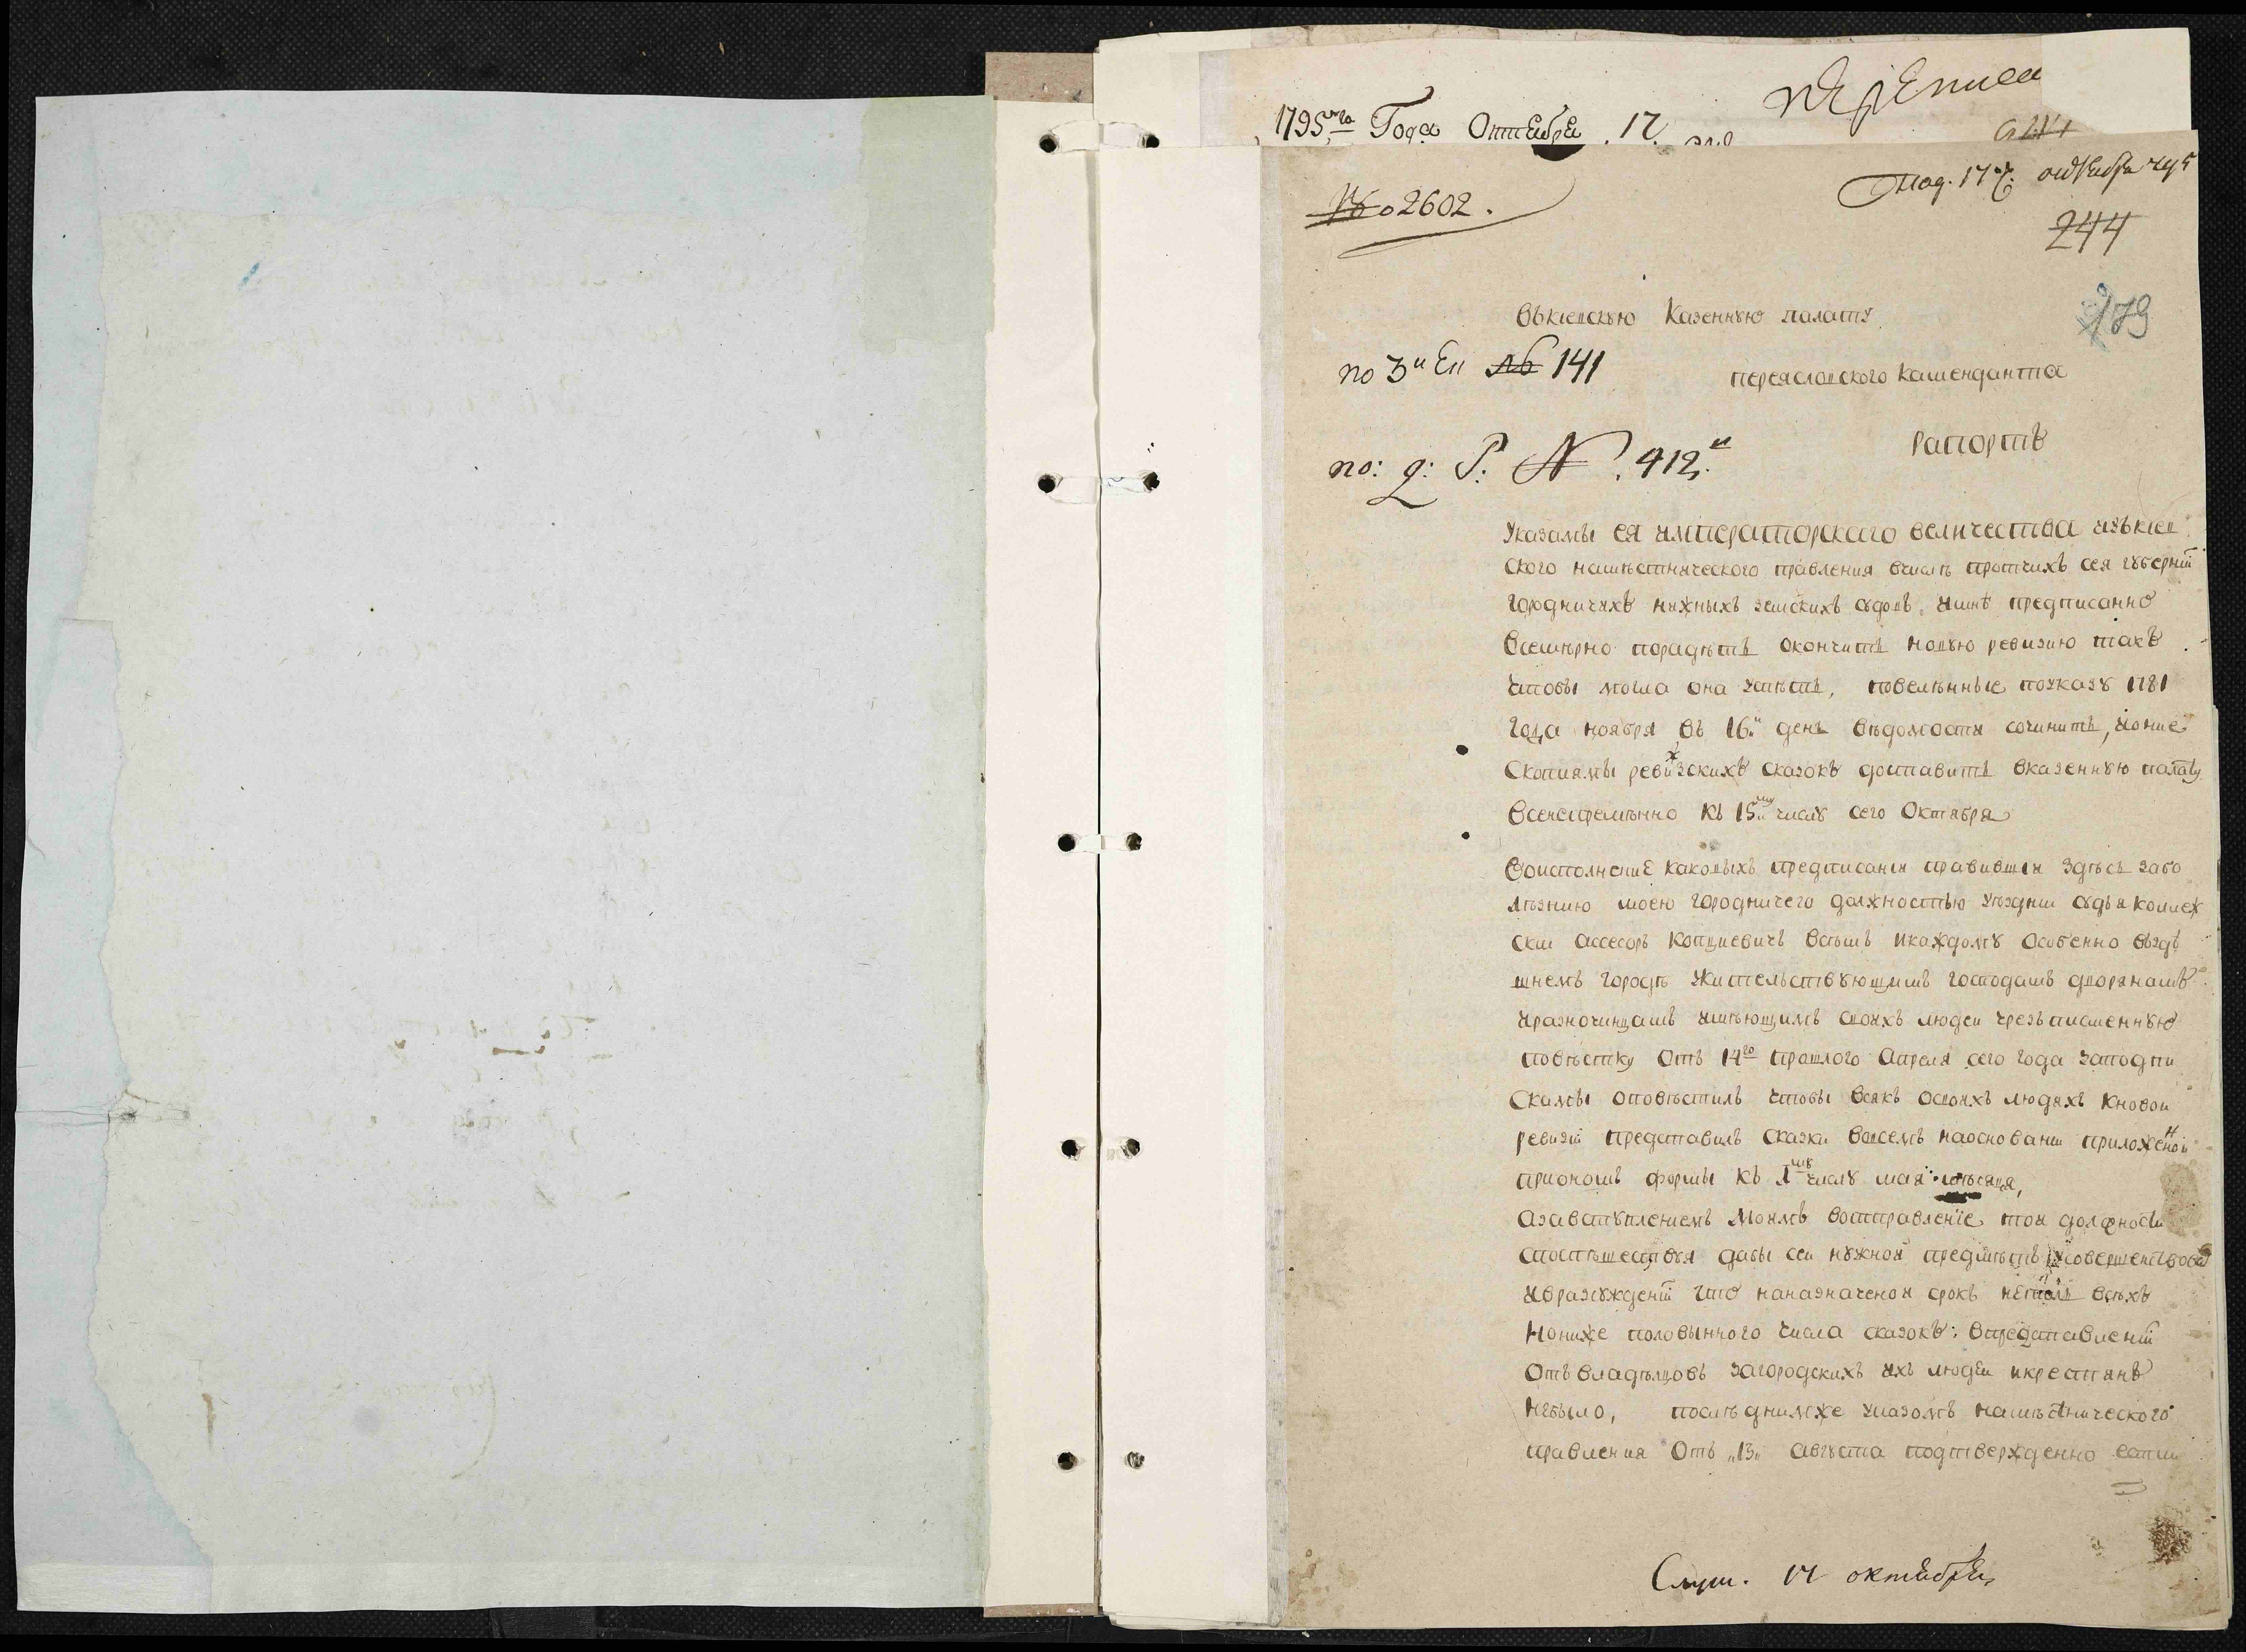 1795го Года Октебре 17.
№ 2602.
Под. 17 октебра 795
244
179
въкіевскую казенную палату
по 3й Еп № 141
переясловского каменданта
по: д: Р: № 412й
рапортъ
Указамы ея императорскаго величества изъкіев
ского намѣстническаго правления вчислѣ протчихъ сея губерніи
городничихъ нижныхъ земскихъ судовъ, имнѣ предписанно
всемѣрно порадѣть окончить новую ревизию такъ
чтобы могла она успѣть, повелѣнные поуказу 1781
года ноября въ 16й день вѣдомости сочинить, ионие
скопиямы ревизскихъ сказокъ доставить вказенную палату
всенепремѣнно къ 15му числу сего Октября
Воисполнение каковыхъ предписаниі правившии здѣсь забо
лѣзнию моею городничего должностью уѣздни судья коллеж
ски ассесоръ копцевичъ всѣмъ икаждому особенно въздѣ
шнемъ городѣ жительствующимъ господамъ дворянамъ
иразночинцамъ имѣющимъ своихъ людеи чрезъ писменную
повѣстку отъ 14го прошлого апреля сего года заподпи
скамы оповѣстилъ чтобы всякъ освоихъ людяхъ кновои
ревизіи представилъ сказки вовсемъ наосновани приложенои
приономъ формы къ 1му числу мая мѣсяца,
азавступлениемъ моимъ воотправление тои должности
споспѣшествуя дабы сеи нужнои предмѣтъ усовершенствова
ивразсуждениі что наназначенои срокъ нетолъ всѣхъ
нониже половынного числа сказокъ: впредставлениі
отъ владѣлцовъ загородскихъ ихъ людеи икрестянъ
небыло, послѣднимже указомъ намѣстнического
правления отъ „13„ августа подтвержденно естли
Слуш. 17 октебре